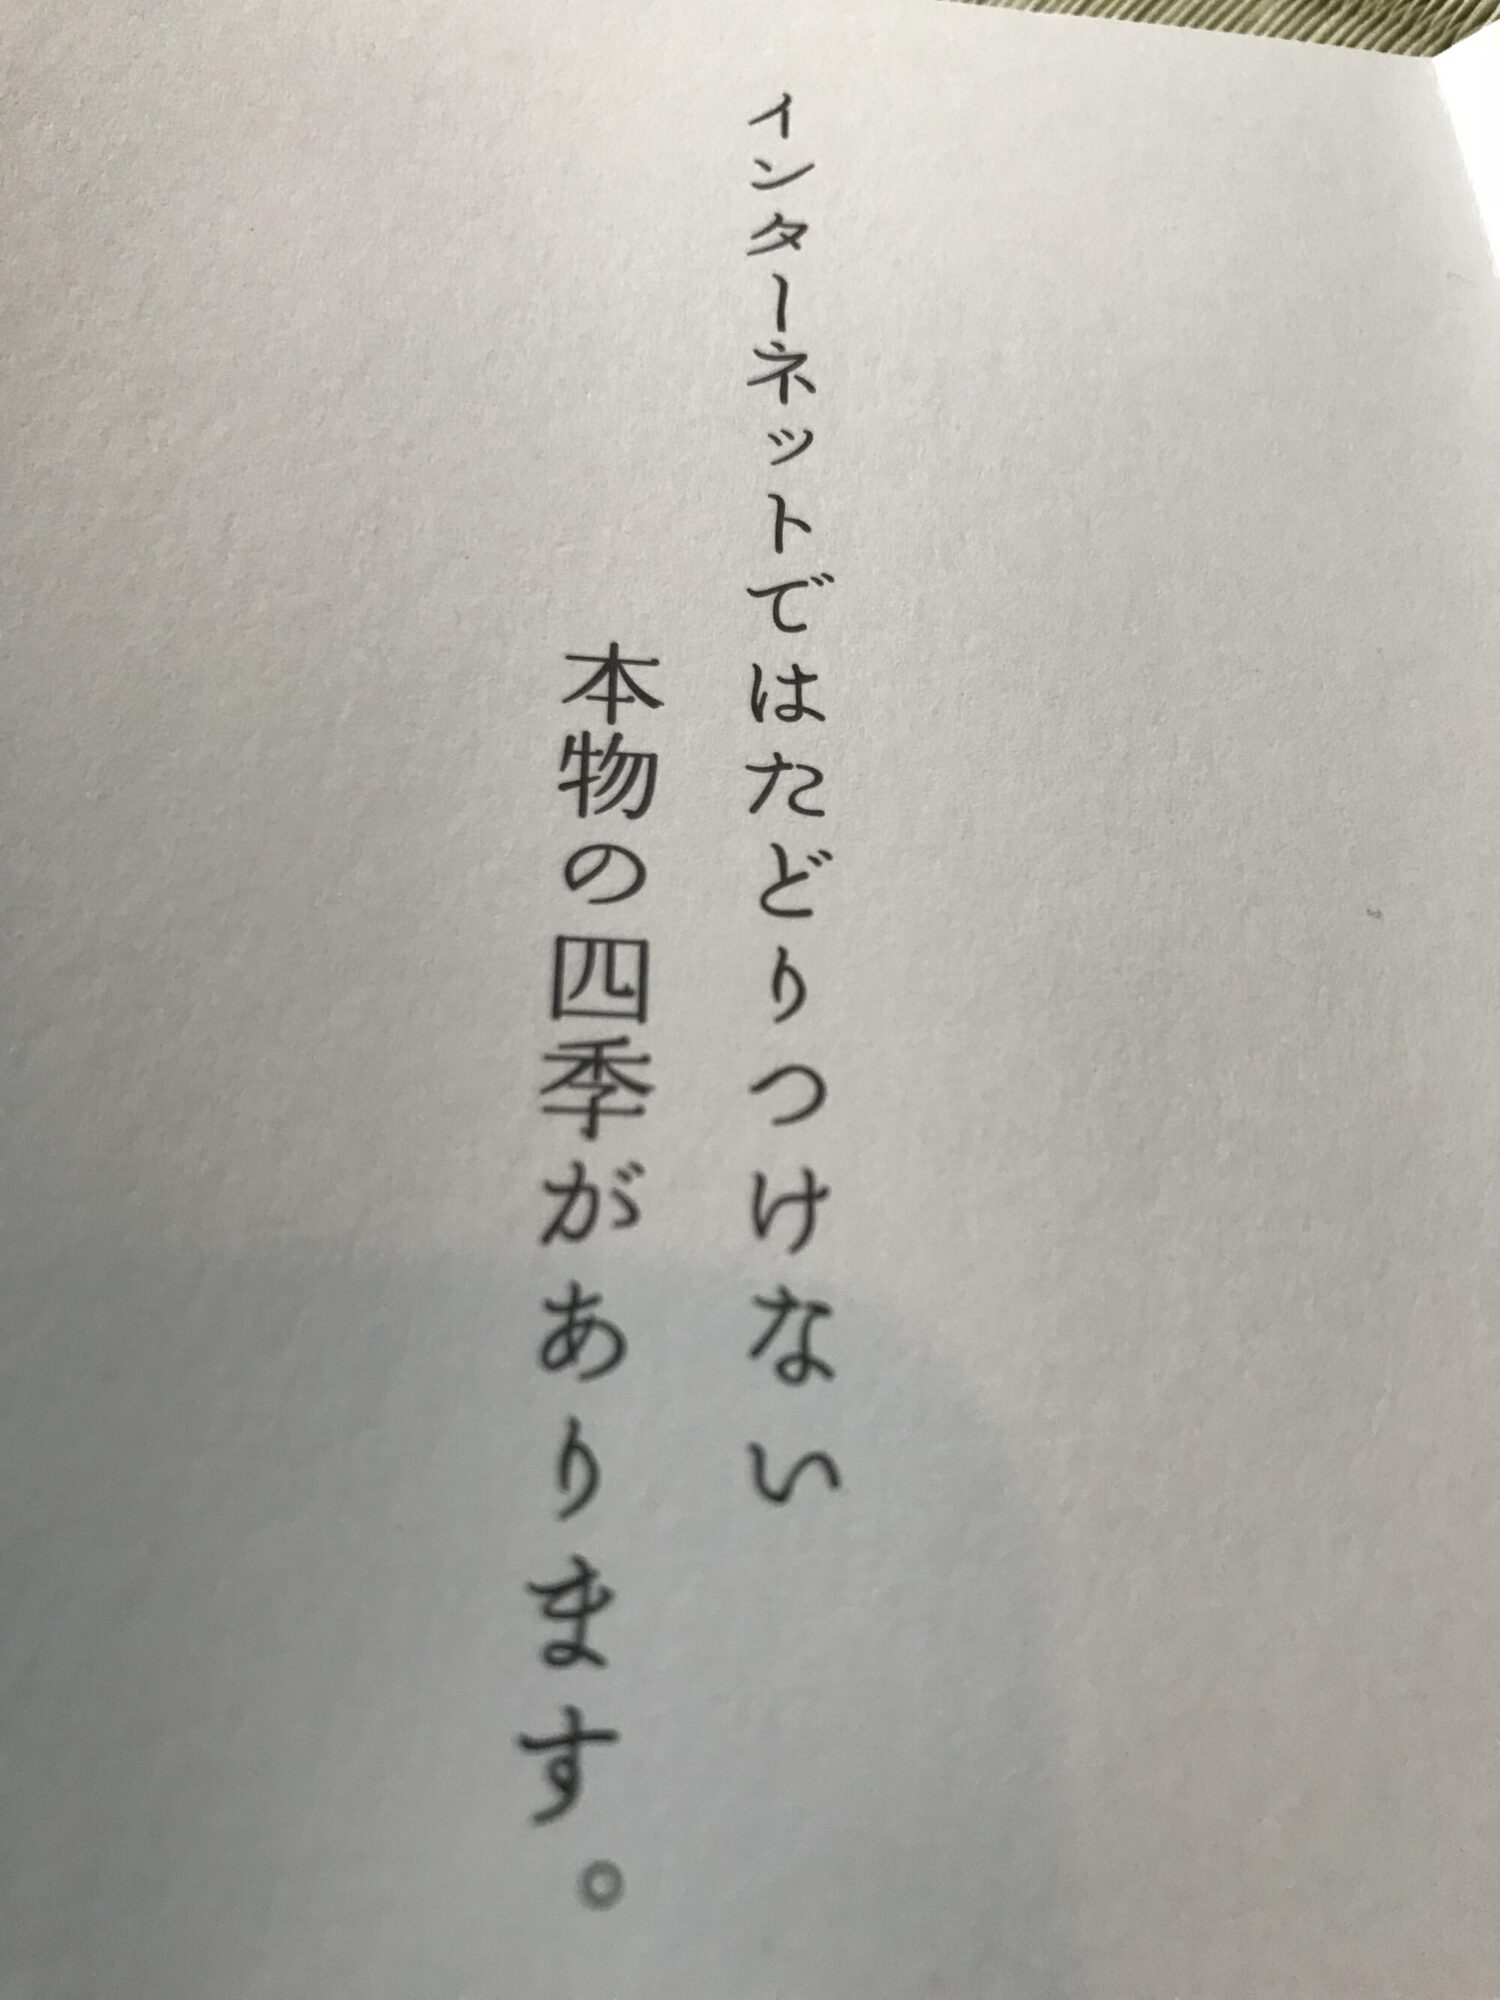 インターネットではたどりつけない
本物の四季があります。